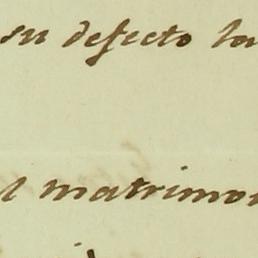 su defecto la
l matrimon